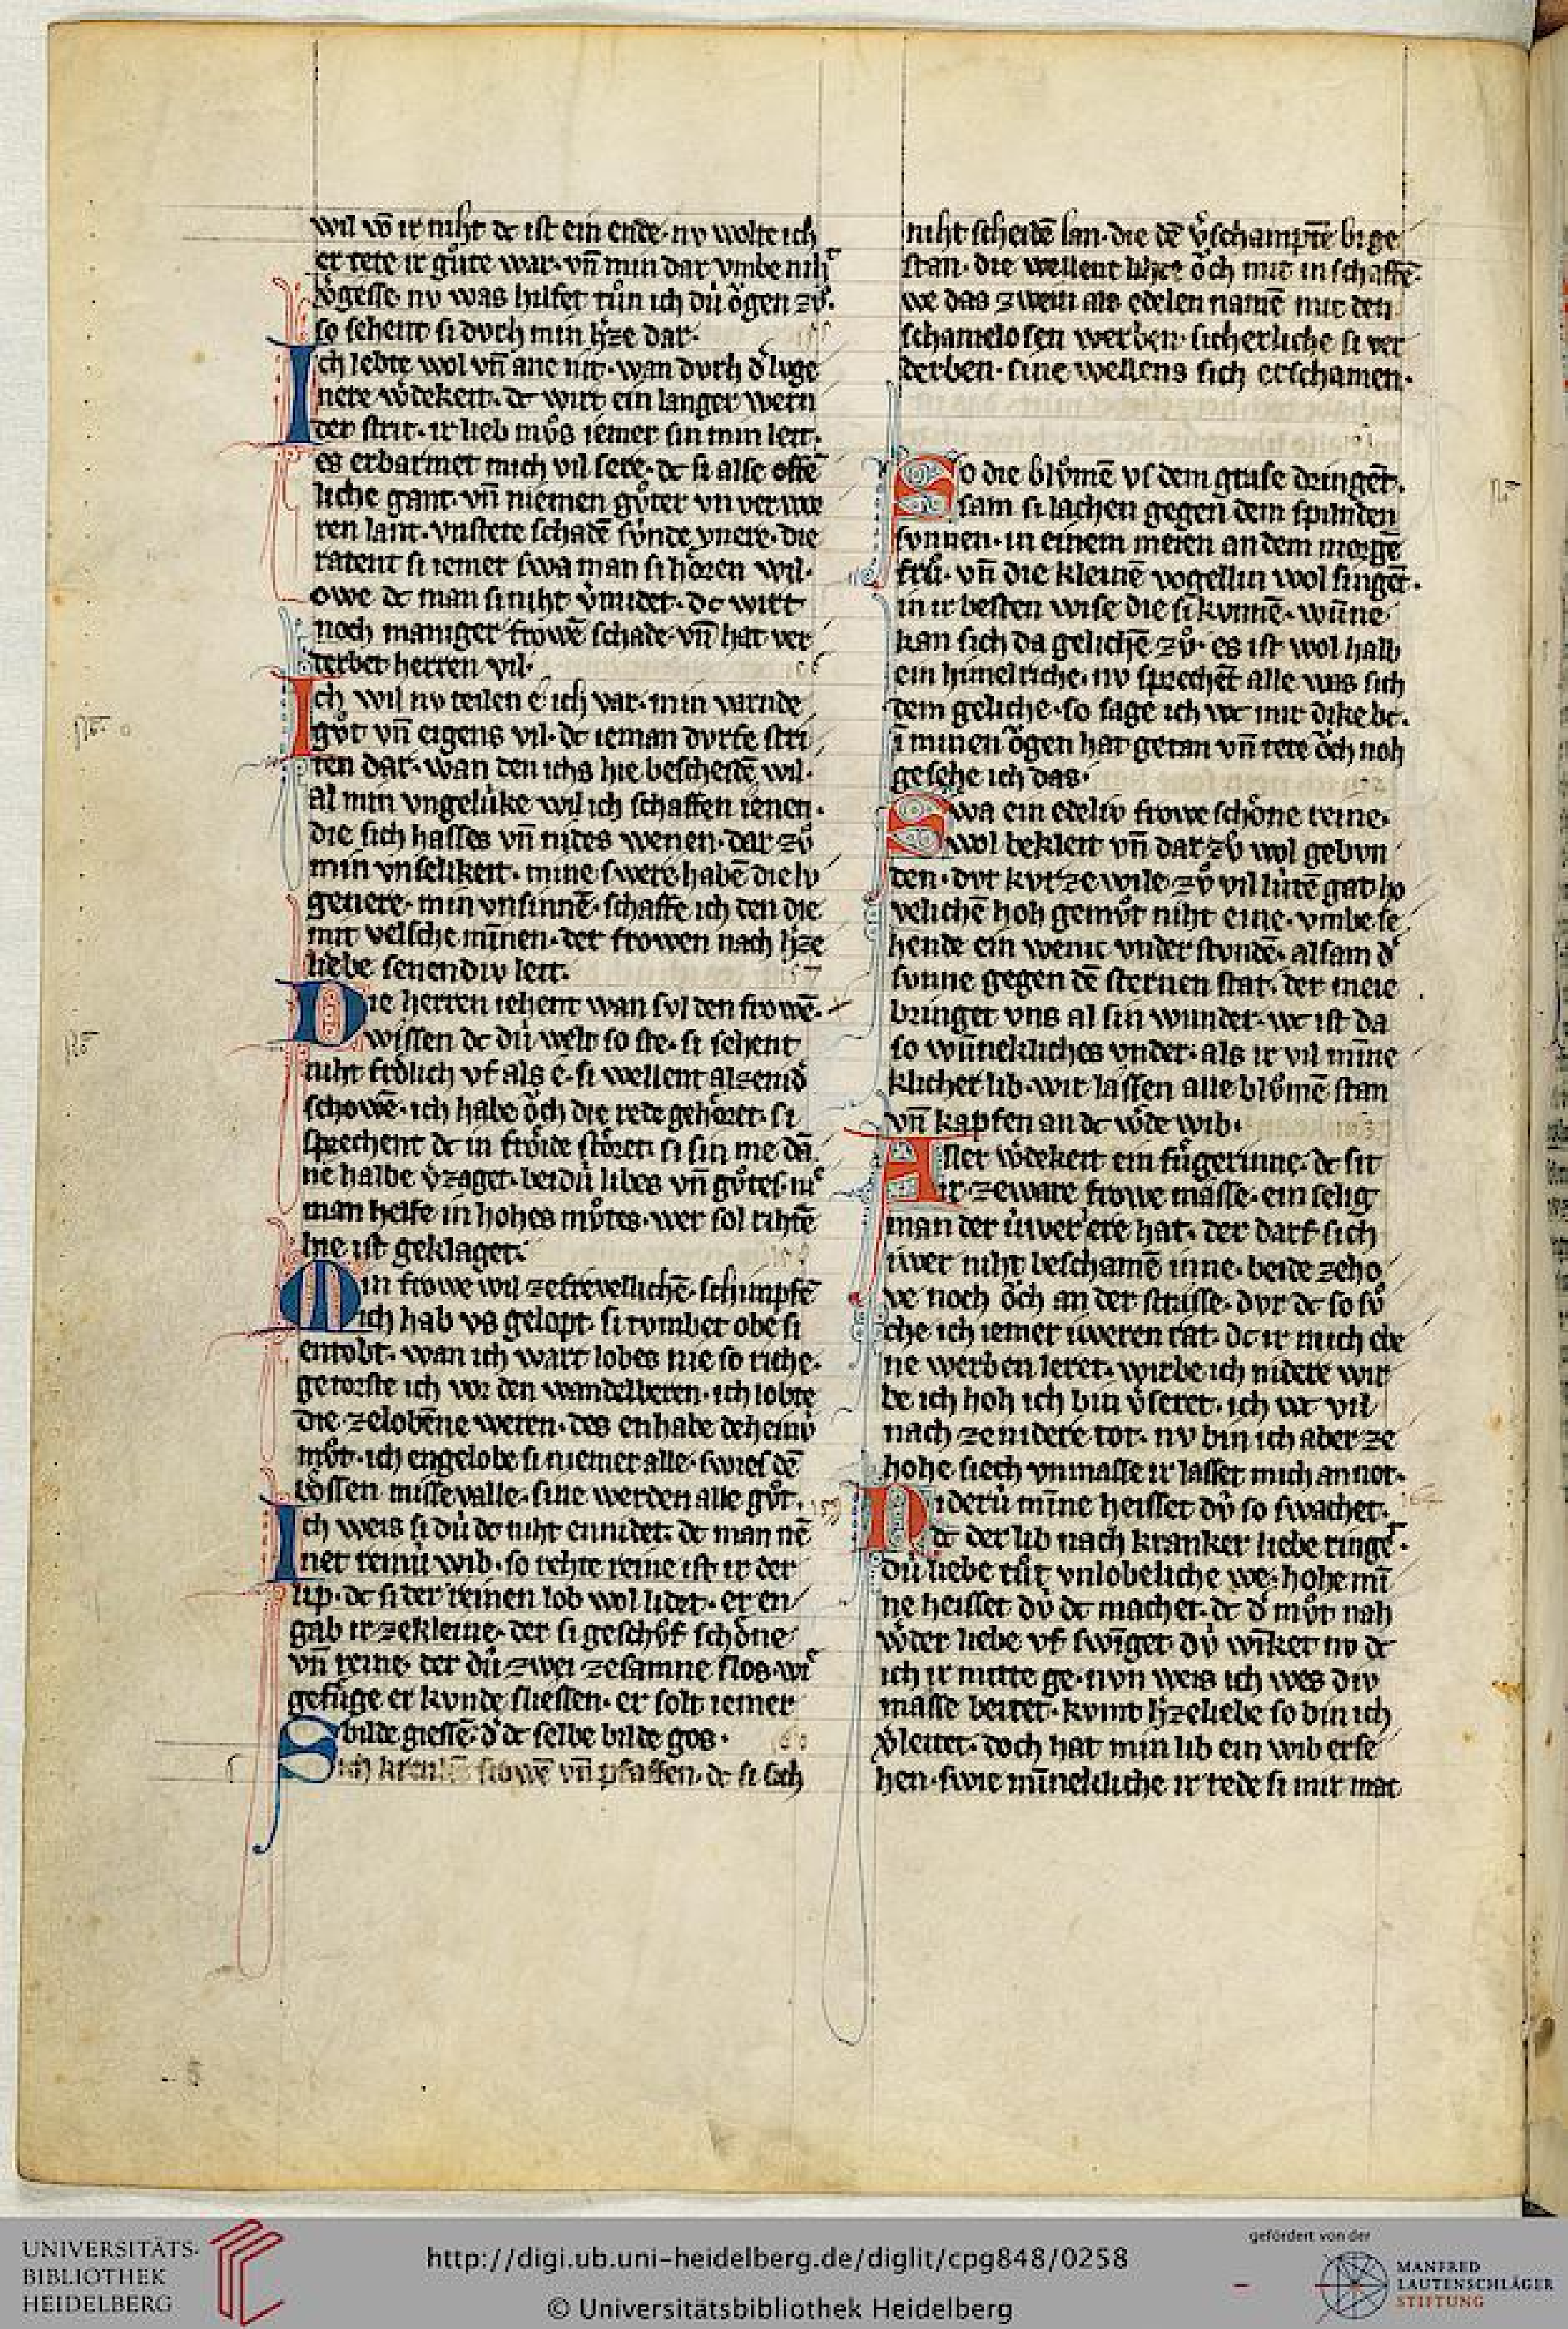 wil vō ir niht dc ist ein ende·nv wolte ich
er tete ir gůte war·vn̄ min dar vmbe niht
v̓gesse nv was hilfet tůn ich dú ǒgen zů·
so sehent si dvrh min h̓ze dar·
Ich lebte wol vn̄ ane nit·wan dvrh d̓ lvge
nere w̓dekeit·dc wirt ein langer wern
der strit·ir lieb můs iemer sin min leit·
es erbarmet mich vil sere·dc si alse offē
liche gant·vn̄ niemen gůter vn verwor
ren lant·vnstete schadē sv́nde vnere·die
ratent si iemer swa man si hȯren wil·
owe dc man si niht v̓midet·dc wirt
noch maniger frowē schade·vn̄ hat ver
derbet herren vil·
Ich wil nv teilen e ich var·min varnde
gůt vn̄ eigens vil·dc ieman dvrfe stri
ten dar·wan den ichs hie bescheidē wil·
al min vngelúke wil ich schaffen ienen·
die sich hasses vn̄ nides wenen·dar zů
min vnselikeit·mine swere habē die lv
genere·min vnsinnē·schaffe ich den die
mit velsche mīnen·der frowen nach h̓ze
liebe senendiv leit·
Die herren iehent wan sol den frowē·
wissen dc dú welt so ste·si sehent
niht frȯlich vf als e·si wellent alzenid̓
schowē·ich habe ǒch die rede gehȯret·si
sprechent dc in frȯide stȯret·si sin me dā
ne halbe v̓zaget·beidú libes vn̄ gůtes·nie
man helfe in hohes můtes·wer sol rihtē
hie ist geklaget·
Min frowe wil zefrevellichē·schimpfē
ich hab vs gelopt·si tvmbet obe si
entobt·wan ich wart lobes nie so riche·
getorste ich vor den wandelberen·ich lobte
die zelobēne weren·des enhabe deheinv
můt·ich engelobe si niemer alle·swies dē
lȯssen missevalle·sine werden alle gůt·
Ich weis si dú dc niht ennidet·dc man nē
net reinú wib·so rehte reine ist ir der
lip·dc si der reinen lob wol lidet·er en
gab ir zekleine·der si geschůf schȯne
vn̄ reine·der dú zwei zesamne slos·wie
gefůge er kvnde sliessen·er solt iemer
bilde giessē·d̓ dc selbe bilde gos·
Sich krenkē frowē vn̄ pfaffen·dc si sich
niht scheidē lan·die dē v̓schamptē bi ge
stan·die wellent lihte ǒch mit in schaffē·
we das zwein als edelen namē mit den
schamelosen werben·sicherliche si ver
derben·sine wellens sich erschamen·
So die blůmē vs dem grase dringēt·
sam si lachen gegen dem spilnden
svnnen·in einem meien an dem morgē
frů·vn̄ die kleinē vogellin wol singēt·
in ir besten wise die si kvnnē·wūne
kan sich da gelichē zů·es ist wol halb
ein himelriche·nv sprechēt alle was sich
dem geliche·so sage ich wc mir dike bc·
ī minen ǒgen hat getan vn̄ tete ǒch noh
gesehe ich das·
Swa ein edeliv frowe schȯne reine·
wol bekleit vn̄ dar zů wol gebvn
den·dvr kvrzewile zů vil lútē gat·ho
velichē hoh gemůt niht eine·vmbe se
hende ein wenic vnder stvndē·alsam d̓
svnne gegen dē sternen stat·der meie
bringet vns al sin wunder·wc ist da
so wūnekliches vnder·als ir vil mīne
klicher lib·wir lassen alle blůmē stan
vn̄ kapfen an dc w̓de wib·
Aller w̓dekeit ein fůgerinne·dc sit
ir zeware frowe masse·ein selig
man der úwer ere hat·der darf sich
úwer niht beschamē inne·beide zeho
ve noch ǒch an der strasse·dvr dc so sů
che ich iemer úweren rat·dc ir mich ebe
ne werben leret·wirbe ich nidere wir
be ich hoh ich bin v̓seret·ich wc vil
nach zenidere tot·nv bin ich aber ze
hohe siech vnmasse ir lasset mich an not·
Niderú mīne heisset dú so swachet·
dc der lib nach kranker liebe ringet·
dú liebe tůt vnlobeliche we·hohe mī
ne heisset dú dc machet·dc d̓ můt nah
w̓der liebe vf swīget·dú wīket nv dc
ich ir mitte ge·nvn weis ich wes div
masse beitet·kvmt h̓zeliebe so bin ich
v̓leitet·doch hat min lib ein wib erse
hen·swie mīnekliche ir rede si mir mac
UNIVERSITÄTS-
BIBLIOTHEK
HEIDELBERG
http://digi.ub.uni-heidelberg.de/diglit/cpg848/0258
© Universitätsbibliothek Heidelberg
gefördert von der
MANFRED
LAUTENSCHLÄGER
STIFTUNG